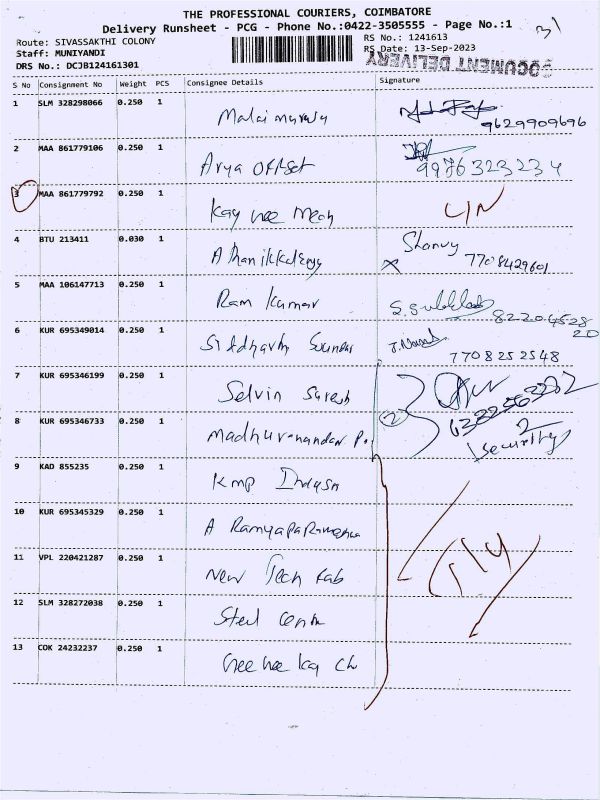 THE PROFESSIONAL COURIERS, COIMBATORE
Delivery Runsheet - PCG - Phone No.:0422-3505555 - Page No.:1
Route: SIVASSAKTHI COLONY
RS No.: 1241613
Staff: MUNIYANDI
RS Date: 13-Sep-2023
DRS No.: DCJB124161301
DOCUMENT DELIVERY
S No Consignment No Weight PCS Consignee Details Signature
1 SLM 328298066 0.250 1
9629909696
2 MAA 861779106 0.250 1 Arya Offset
9976323234
3 MAA 861779792 0.250 1 Kay nee Mech
4 BTU 213411 0.030 1
7708429601
5 MAA 106147713 0.250 1 Ram Kumar
6 KUR 695349014 0.250 1 Siddharth Sundar
7708252548
7 KUR 695346199 0.250 1 Selvin Suresh
8 KUR 695346733 0.250 1 Madhuranandan P.
2
(security)
9 KAD 855235 0.250 1 Kmp
10 KUR 695345329 0.250 1 A
11 VPL 220421287 0.250 1 New Tech Fab
12 SLM 328272038 0.250 1 Steel
13 COK 24232237 0.250 1